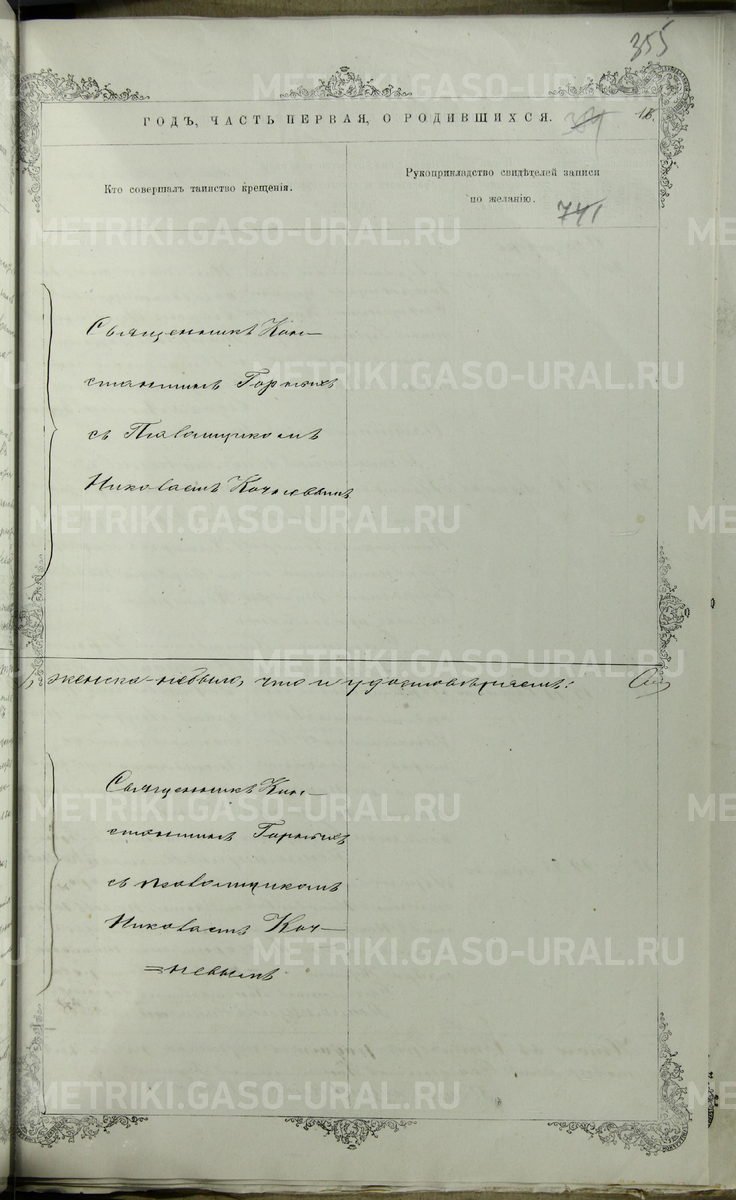 355
ГОДЪ, ЧАСТЬ ПЕРВАЯ, О РОДИВШИХСЯ.
18.
Кто совершалъ таинство крещенія.
Рукоприкладство свидѣтелей записи
по желанію.
741
Священникъ Кон-
стантинъ Горныхъ
съ Псаломщикомъ
Николаемъ Кочневымъ
женска - небыло, что и удостовѣряемъ:
Священникъ Кон-
стантинъ Горныхъ
съ псаломщикомъ
Николаемъ Коч-
=невымъ
METRIKI.GASO-URAL.RU